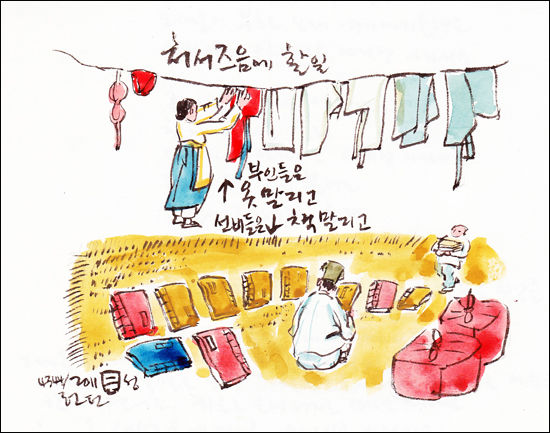 처서즈음에 할일
부인들은
↑ 옷말리고
선비들은↓ 책말리고
4344/2011